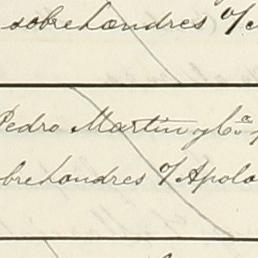 sobre Londres o/c
Pedro Martin y Ca
obre Londres o/ Apolo